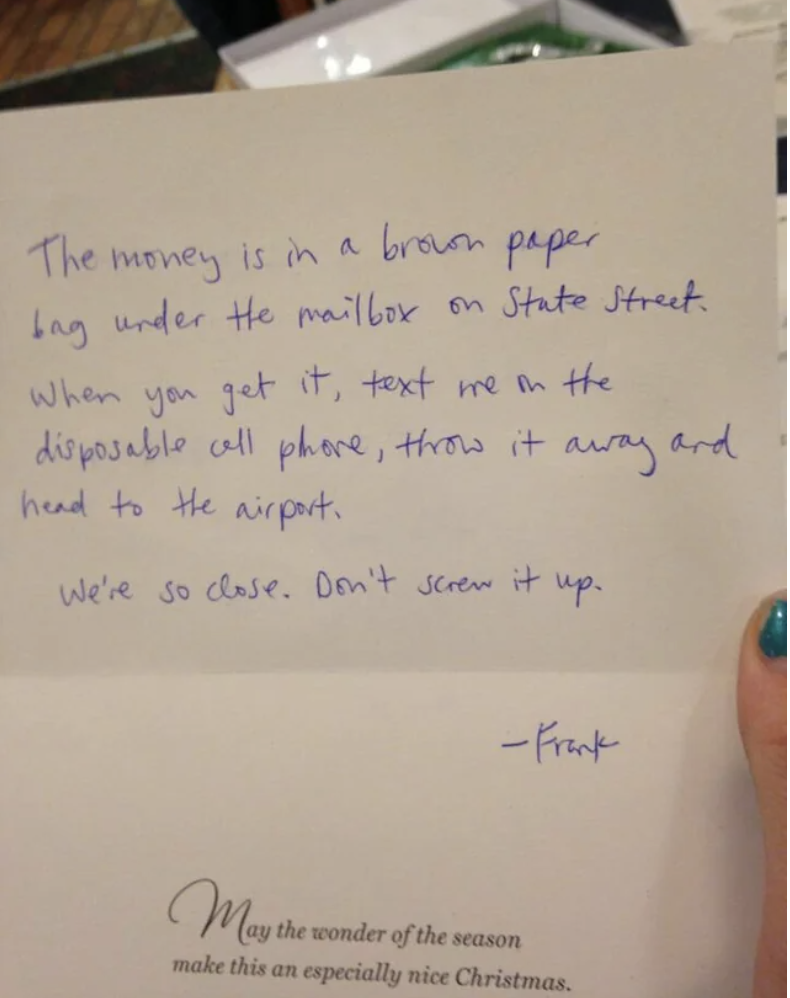 The money is in a brown paper
bag under the mailbox on State Street.
When you get it, text me on the
disposable cell phone, throw it away and
head to the airport.
We're so close. Don't screw it up.
—Frank
May the wonder of the season
make this an especially nice Christmas.